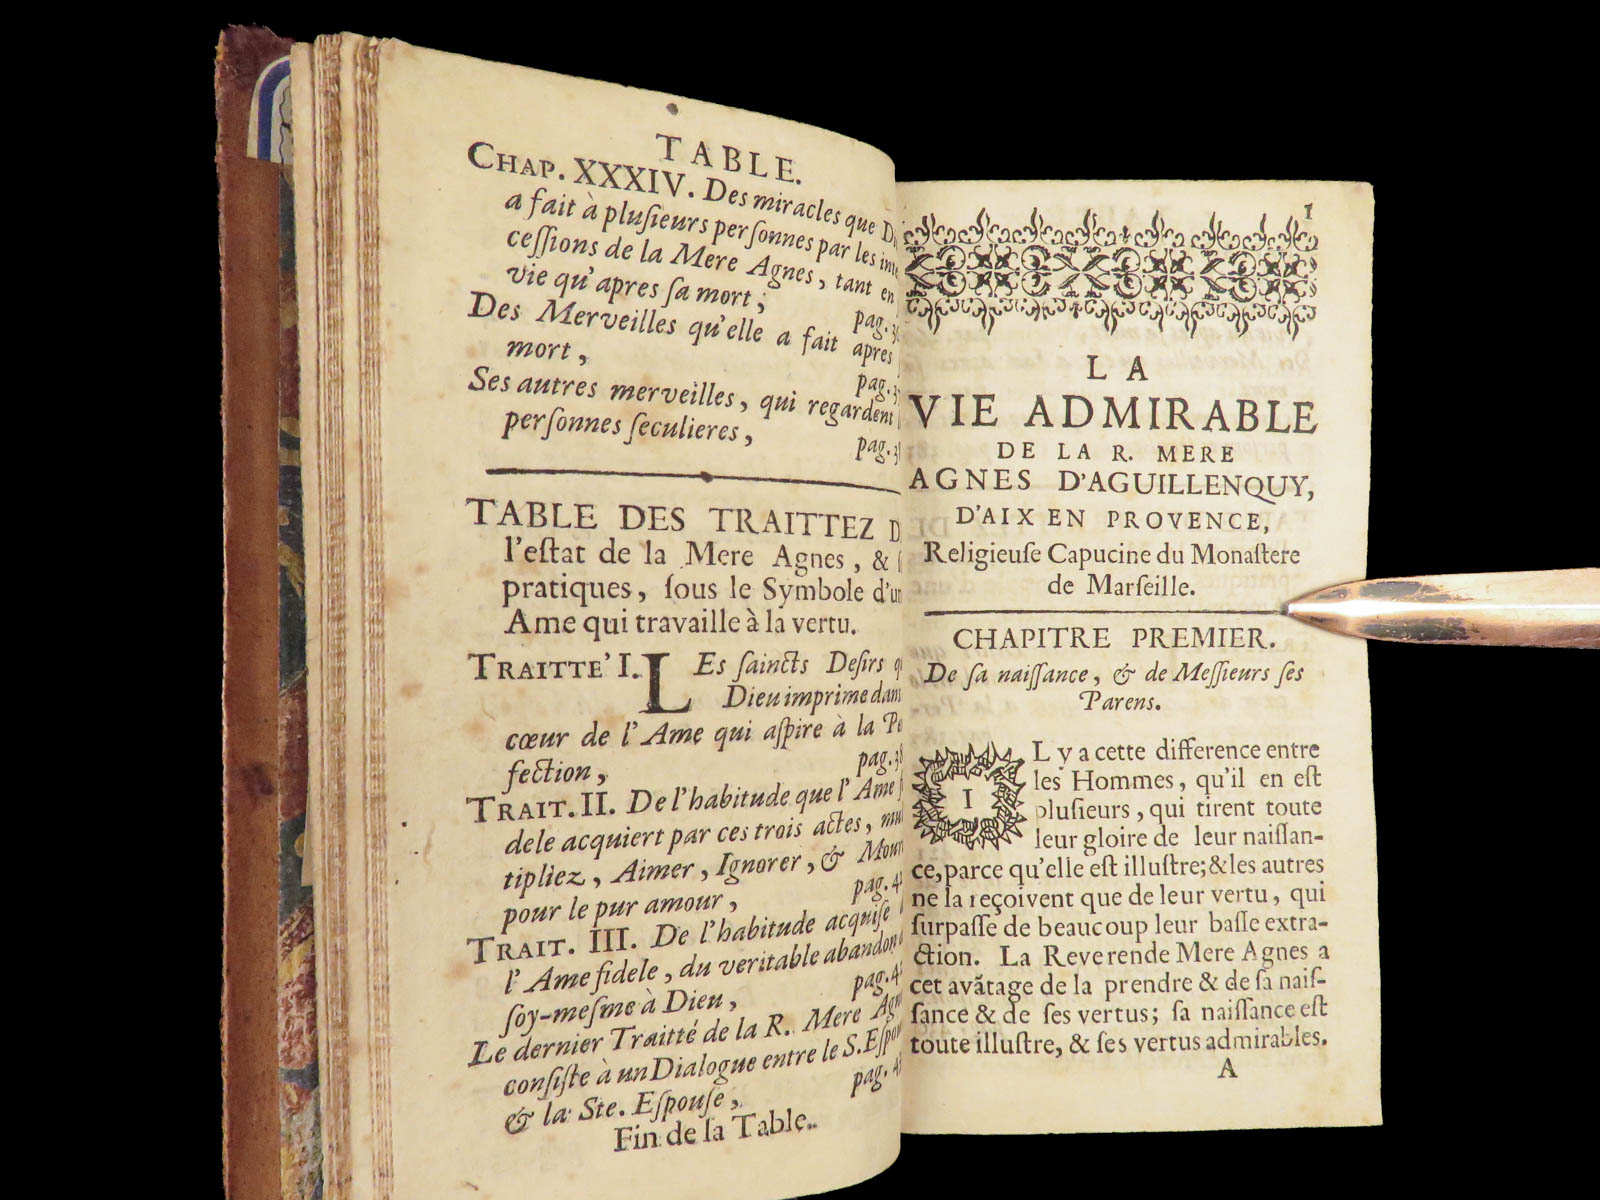 TABLE.
CHAP. XXXIV. Des miracles que
a fait à pluſieurs perſonnes par les
ceſſions de la Mere Agnes, tant en
vie qu'apres ſa mort; pag.
Des Merveilles qu'elle a fait apres
mort, pag.
Ses autres merveilles, qui regardent
perſonnes ſeculieres, pag.
TABLE DES TRAITTEZ
l'eſtat de la Mere Agnes, &
pratiques, ſous le Symbole
Ame qui travaille à la vertu.
TRAITTE' I. LEs ſaincts Deſirs
Dieu imprime dans
cœur de l'Ame qui aſpire à la
fection, pag.
TRAIT. II. De l'habitude que l'Ame
dele acquiert par ces trois actes,
tipliez, Aimer, Ignorer, &
pour le pur amour, pag.
TRAIT. III. De l'habitude acquiſe
l'Ame fidele, du veritable abandon
ſoy-meſme à Dieu, pag.
Le dernier Traitté de la R. Mere
conſiſte à un Dialogue entre le S.
& la Ste. Eſpouſe, pag.
Fin de la Table.
1
LA
VIE ADMIRABLE
DE LA R. MERE
AGNES D'AGUILLENQUY,
D'AIX EN PROVENCE,
Religieuſe Capucine du Monaſtere
de Marſeille.
CHAPITRE PREMIER.
De ſa naiſſance, & de Meſſieurs ſes
Parens.
IL y a cette difference entre
les Hommes, qu'il en eſt
pluſieurs, qui tirent toute
leur gloire de leur naiſſan-
ce, parce qu'elle eſt illuſtre; & les autres
ne la reçoivent que de leur vertu, qui
ſurpaſſe de beaucoup leur baſſe extra-
ction. La Reverende Mere Agnes a
cet avãtage de la prendre & de ſa naiſ-
ſance & de ſes vertus; ſa naiſſance eſt
toute illuſtre, & ſes vertus admirables.
A